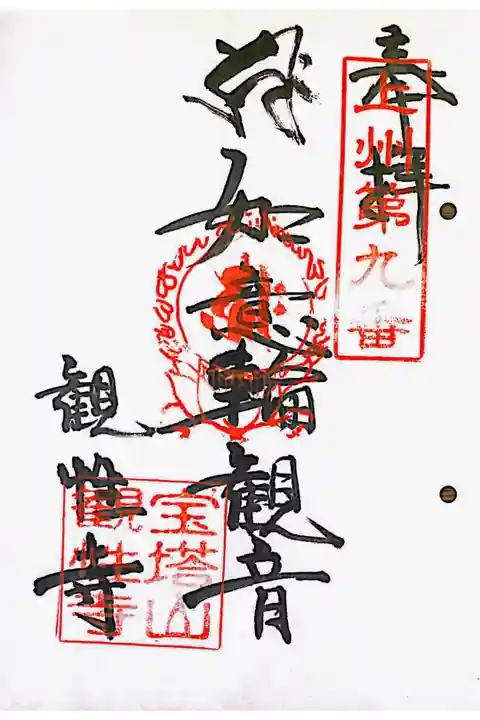 奉拝
上州第九番
如意輪観音
観性寺
宝塔山
觀性寺